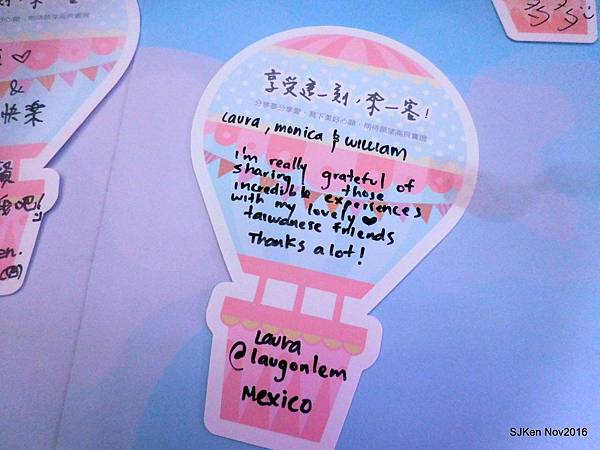 享受這一刻,來一客!
分享夢分享愛,寫下美好心願,期待願望高飛實現
Laura, monica & william
i'm really grateful of
sharing those
incredible experiences
with my lovely ♥
taiwanese friends
Thanks a lot!
Laura
@laugonlem
Mexico
&
快樂
吧!
SJKen Nov2016